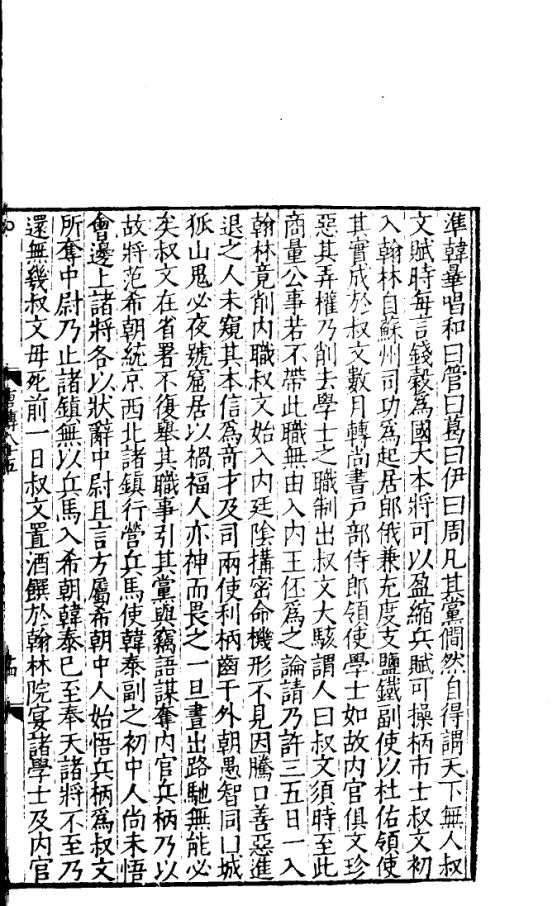 準韓曄唱和曰管曰葛曰伊曰周凡其黨僩然自得謂天下無人叔
文賦時每言錢穀爲國大本將可以盈縮兵賦可操柄市士叔文初
入翰林自蘇州司功爲起居郎俄兼充度支鹽鐵副使以杜佑領使
其實成於叔文數月轉尚書戸部侍郎領使學士如故内官俱文珍
惡其弄權乃削去學士之職制出叔文大駭謂人曰叔文須時至此
商量公事若不帶此職無由入内王伾爲之論請乃許三五日一入
翰林竟削内職叔文始入内廷陰搆密命機形不見因騰口善惡進
退之人未窺其本信爲奇才及司兩使利柄齒于外朝愚智同曰城
狐山鬼必夜號窟居以禍福人亦神而畏之一旦晝出路馳無能必
矣叔文在省署不復舉其職事引其黨與竊語謀奪内官兵柄乃以
故將范希朝統京西北諸鎮行營兵馬使韓泰副之初中人尚未悟
會邊上諸將各以狀辭中尉且言方屬希朝中人始悟兵柄爲叔文
所奪中尉乃止諸鎮無以兵馬入希朝韓泰已至奉天諸將不至乃
還無幾叔文母死前一日叔文置酒饌於翰林院宴諸學士及内官